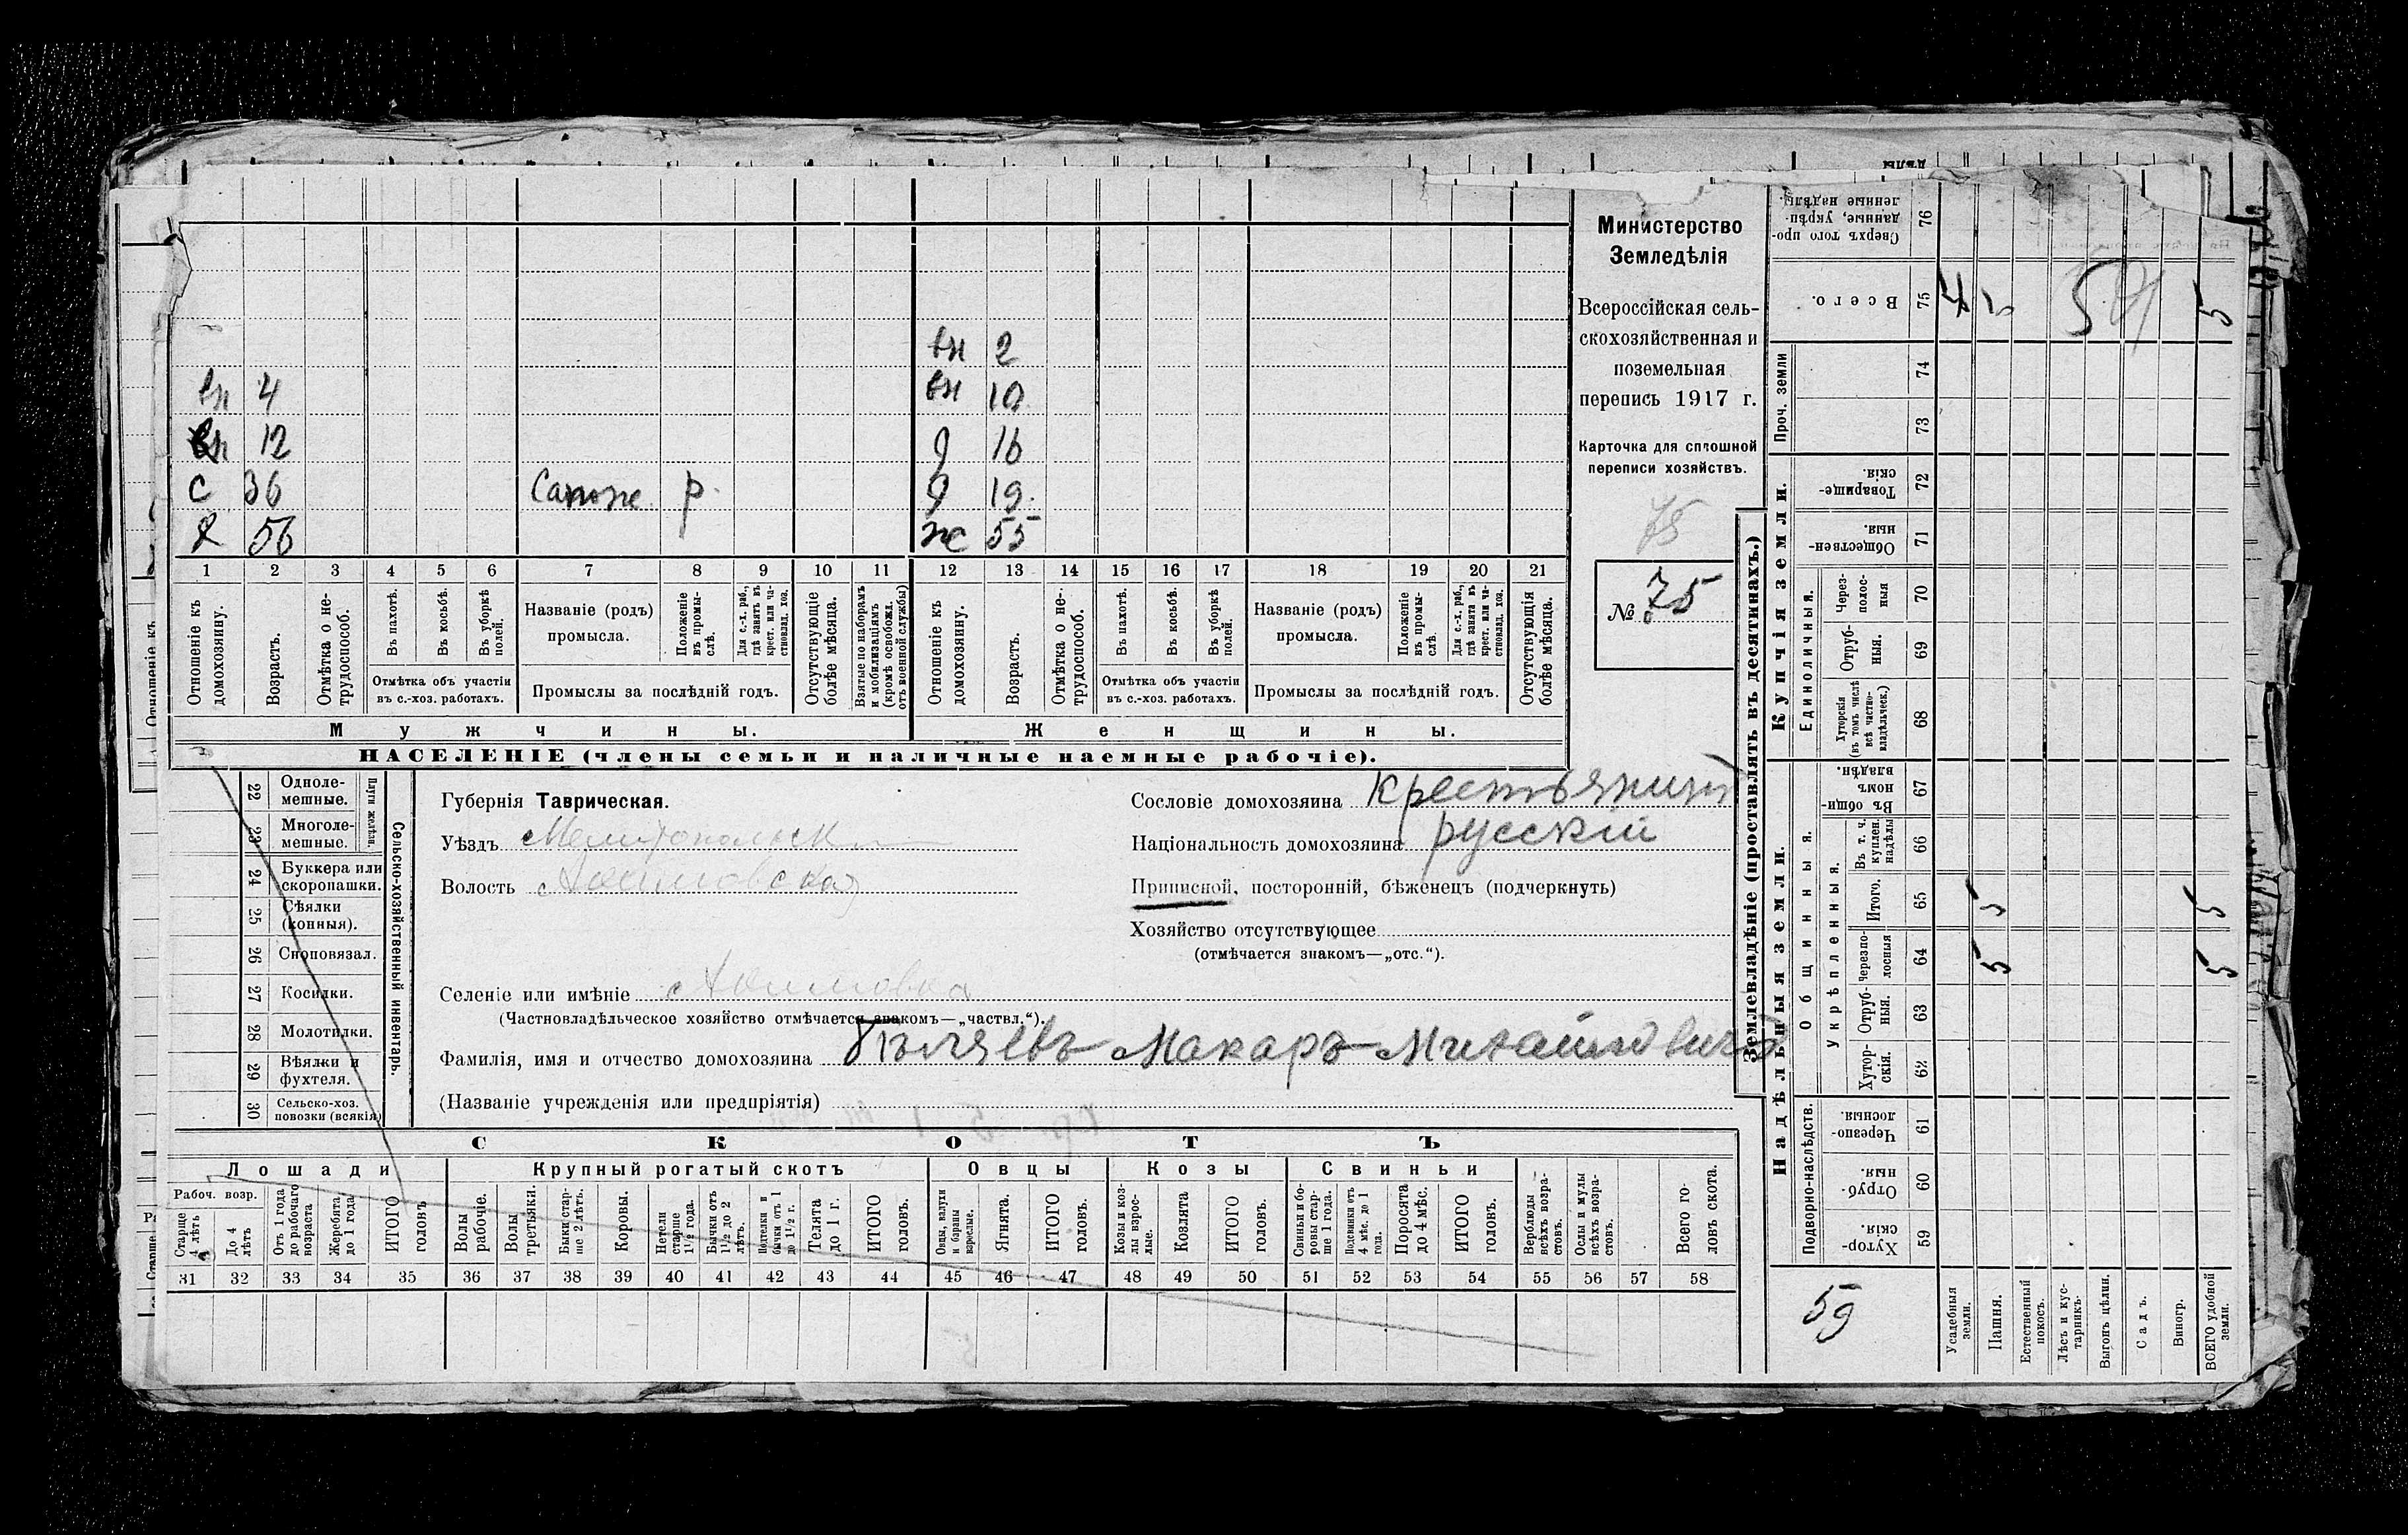 вн 2
вн 4
вн 10
вн 12
д 16
с 36 Сапож. р.
д 19.
Х 56
ж 55
1 2 3 4 5 6 7 8 9 10 11 12 13 14 15 16 17 18 19 20 21
Отношеніе къ домохозяину.
Возрастъ.
Отмѣтка о не-трудоспособ.
Въ пахотѣ.
Въ косьбѣ.
Въ уборкѣ полей.
Отмѣтка объ участіи
въ с.-хоз. работахъ.
Названіе (родъ)
промысла.
Положеніе въ промы-слѣ.
Для с.-х. раб., гдѣ занятъ въ крест. или ча-стновлад. хоз.
Промыслы за послѣдній годъ.
Отсутствующіе болѣе мѣсяца.
Взятые по наборамъ и мобилизаціямъ (кромѣ освобожд. отъ военной службы)
Отношеніе къ домохозяину.
Возрастъ.
Отмѣтка о не-трудоспособ.
Въ пахотѣ.
Въ косьбѣ.
Въ уборкѣ полей.
Отмѣтка объ участіи
въ с.-хоз. работахъ.
Названіе (родъ)
промысла.
Положеніе въ промы-слѣ.
Для с.-х. раб., гдѣ занята въ крест. или ча-стновлад. хоз.
Промыслы за послѣдній годъ.
Отсутствующія болѣе мѣсяца.
Мужчины.
Женщины.
НАСЕЛЕНІЕ (члены семьи и наличные наемные рабочіе).
Министерство
Земледѣлія
Всероссійская сель-
скохозяйственная и
поземельная
перепись 1917 г.
Карточка для сплошной
переписи хозяйствъ.
75
№ 75
Сельско-хозяйственный инвентарь.
Плуги желѣзн.
22 Одноле-мешные.
23 Многоле-мешные.
24 Буккера или скоропашки.
25 Сѣялки (конныя).
26 Сноповязал.
27 Косилки.
28 Молотилки.
29 Вѣялки и фухтеля.
30 Сельско-хоз. повозки (всякія)
Губернія Таврическая.
Уѣздъ Мелитопольск
Волость Акимовская
Селеніе или имѣніе с Акимовка
(Частновладѣльческое хозяйство отмѣчается знакомъ—„частвл.“).
Фамилія, имя и отчество домохозяина Бѣляевъ Макаръ Михайловичъ
(Названіе учрежденія или предпріятія)
Сословіе домохозяина Крестьянинъ
Національность домохозяина русскій
Приписной, посторонній, бѣженецъ (подчеркнуть)
Хозяйство отсутствующее
(отмѣчается знакомъ—„отс.“).
СКОТЪ
Лошади
Крупный рогатый скотъ
Овцы
Козы
Свиньи
Рабоч. возр.
Старше 4 лѣтъ
До 4 лѣтъ
Отъ 1 года до рабочаго возраста
Жеребята до 1 года
ИТОГО головъ
Волы рабочіе.
Волы третьяки.
Быки стар-ше 2 лѣтъ.
Коровы.
Нетели старше 1½ года.
Бычки отъ 1½ до 2 лѣтъ.
Подтелки и бычки отъ 1 до 1½ г.
Телята до 1 г.
ИТОГО головъ.
Овцы, валухи и бараны взрослые.
Ягнята.
ИТОГО головъ.
Козы и коз-лы взрос-лые.
Козлята
ИТОГО головъ.
Свиньи и бо-ровы стар-ше 1 года.
Подсвинки отъ 4 мѣс. до 1 года.
Поросята до 4 мѣс.
ИТОГО головъ.
Верблюды всѣхъ возра-стовъ.
Ослы и мулы всѣхъ возра-стовъ.
Всего го-ловъ скота.
31 32 33 34 35 36 37 38 39 40 41 42 43 44 45 46 47 48 49 50 51 52 53 54 55 56 57 58
Землевладѣніе (проставлять въ десятинахъ.)
Надѣльныя земли.
Купчія земли.
Проч. земли
Подворно-наслѣдств.
Общинныя.
Укрѣпленныя.
Единоличныя.
Сверхъ того про-данные, укрѣп-ленные надѣлы. 76
Всего. 75 5
74
73
Товарище-скія. 72
Обществен-ныя. 71
Через-полос-ныя 70
Отруб-ныя. 69
Хуторскія (въ томъ числѣ всѣ частно-владѣльческ.) 68
Въ общи-номъ владѣн. 67
Въ т. ч. куплен. надѣлы 66
Итого. 65 5 5
Черезпо-лосныя 64 5 5
Отруб-ныя. 63
Хутор-скія. 62
Черезпо-лосныя. 61
Отруб-ныя. 60
Хутор-скія. 59
59
Усадебныя земли.
Пашня.
Естественный покосъ.
Лѣсъ и кус-тарникъ.
Выгонъ цѣлин.
Садъ.
Виногр.
ВСЕГО удобной земли.